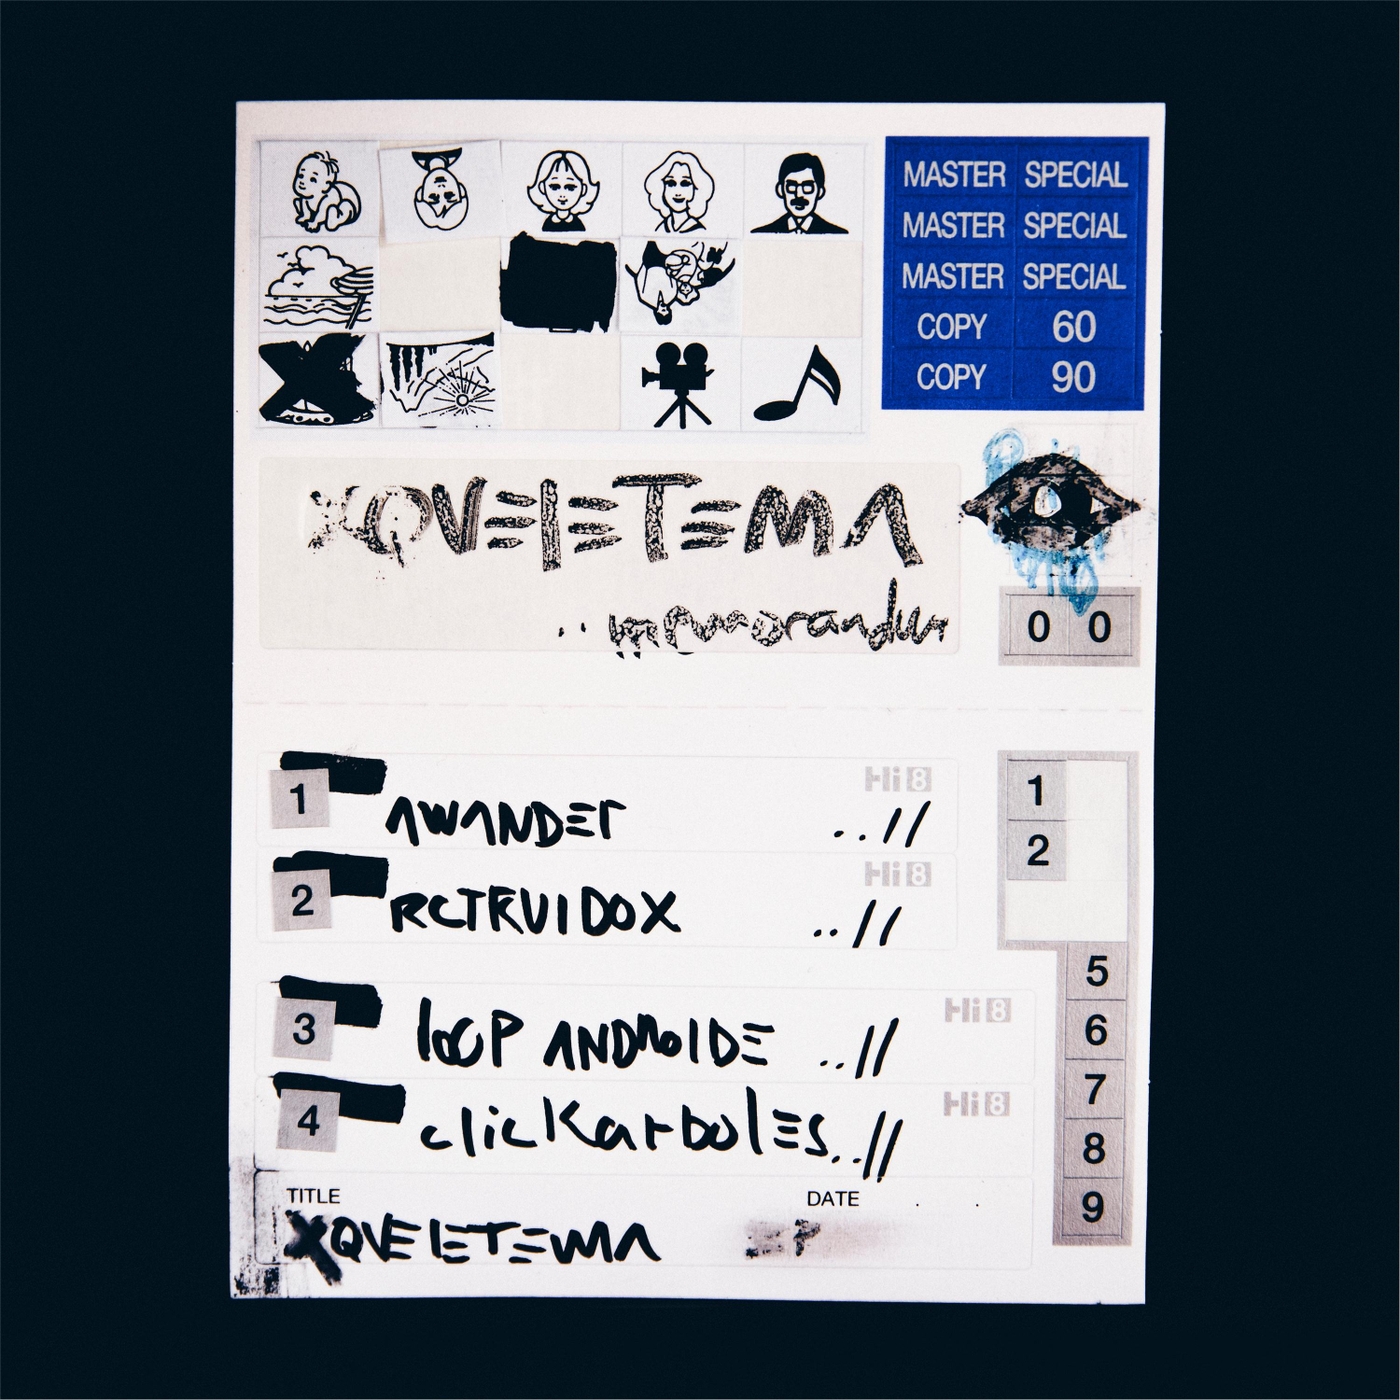 MASTER SPECIAL
MASTER SPECIAL
MASTER SPECIAL
COPY 60
COPY 90
XQVELETEMA
..memorandum
0 0
Hi8
1 AWANDER ..//
Hi8
2 RETRVIDOX ..//
Hi8
3 looP ANDROIDE ..//
Hi8
4 clicKarbolES..//
1
2
5
6
7
8
9
TITLE DATE . .
XQVELETEMA EP